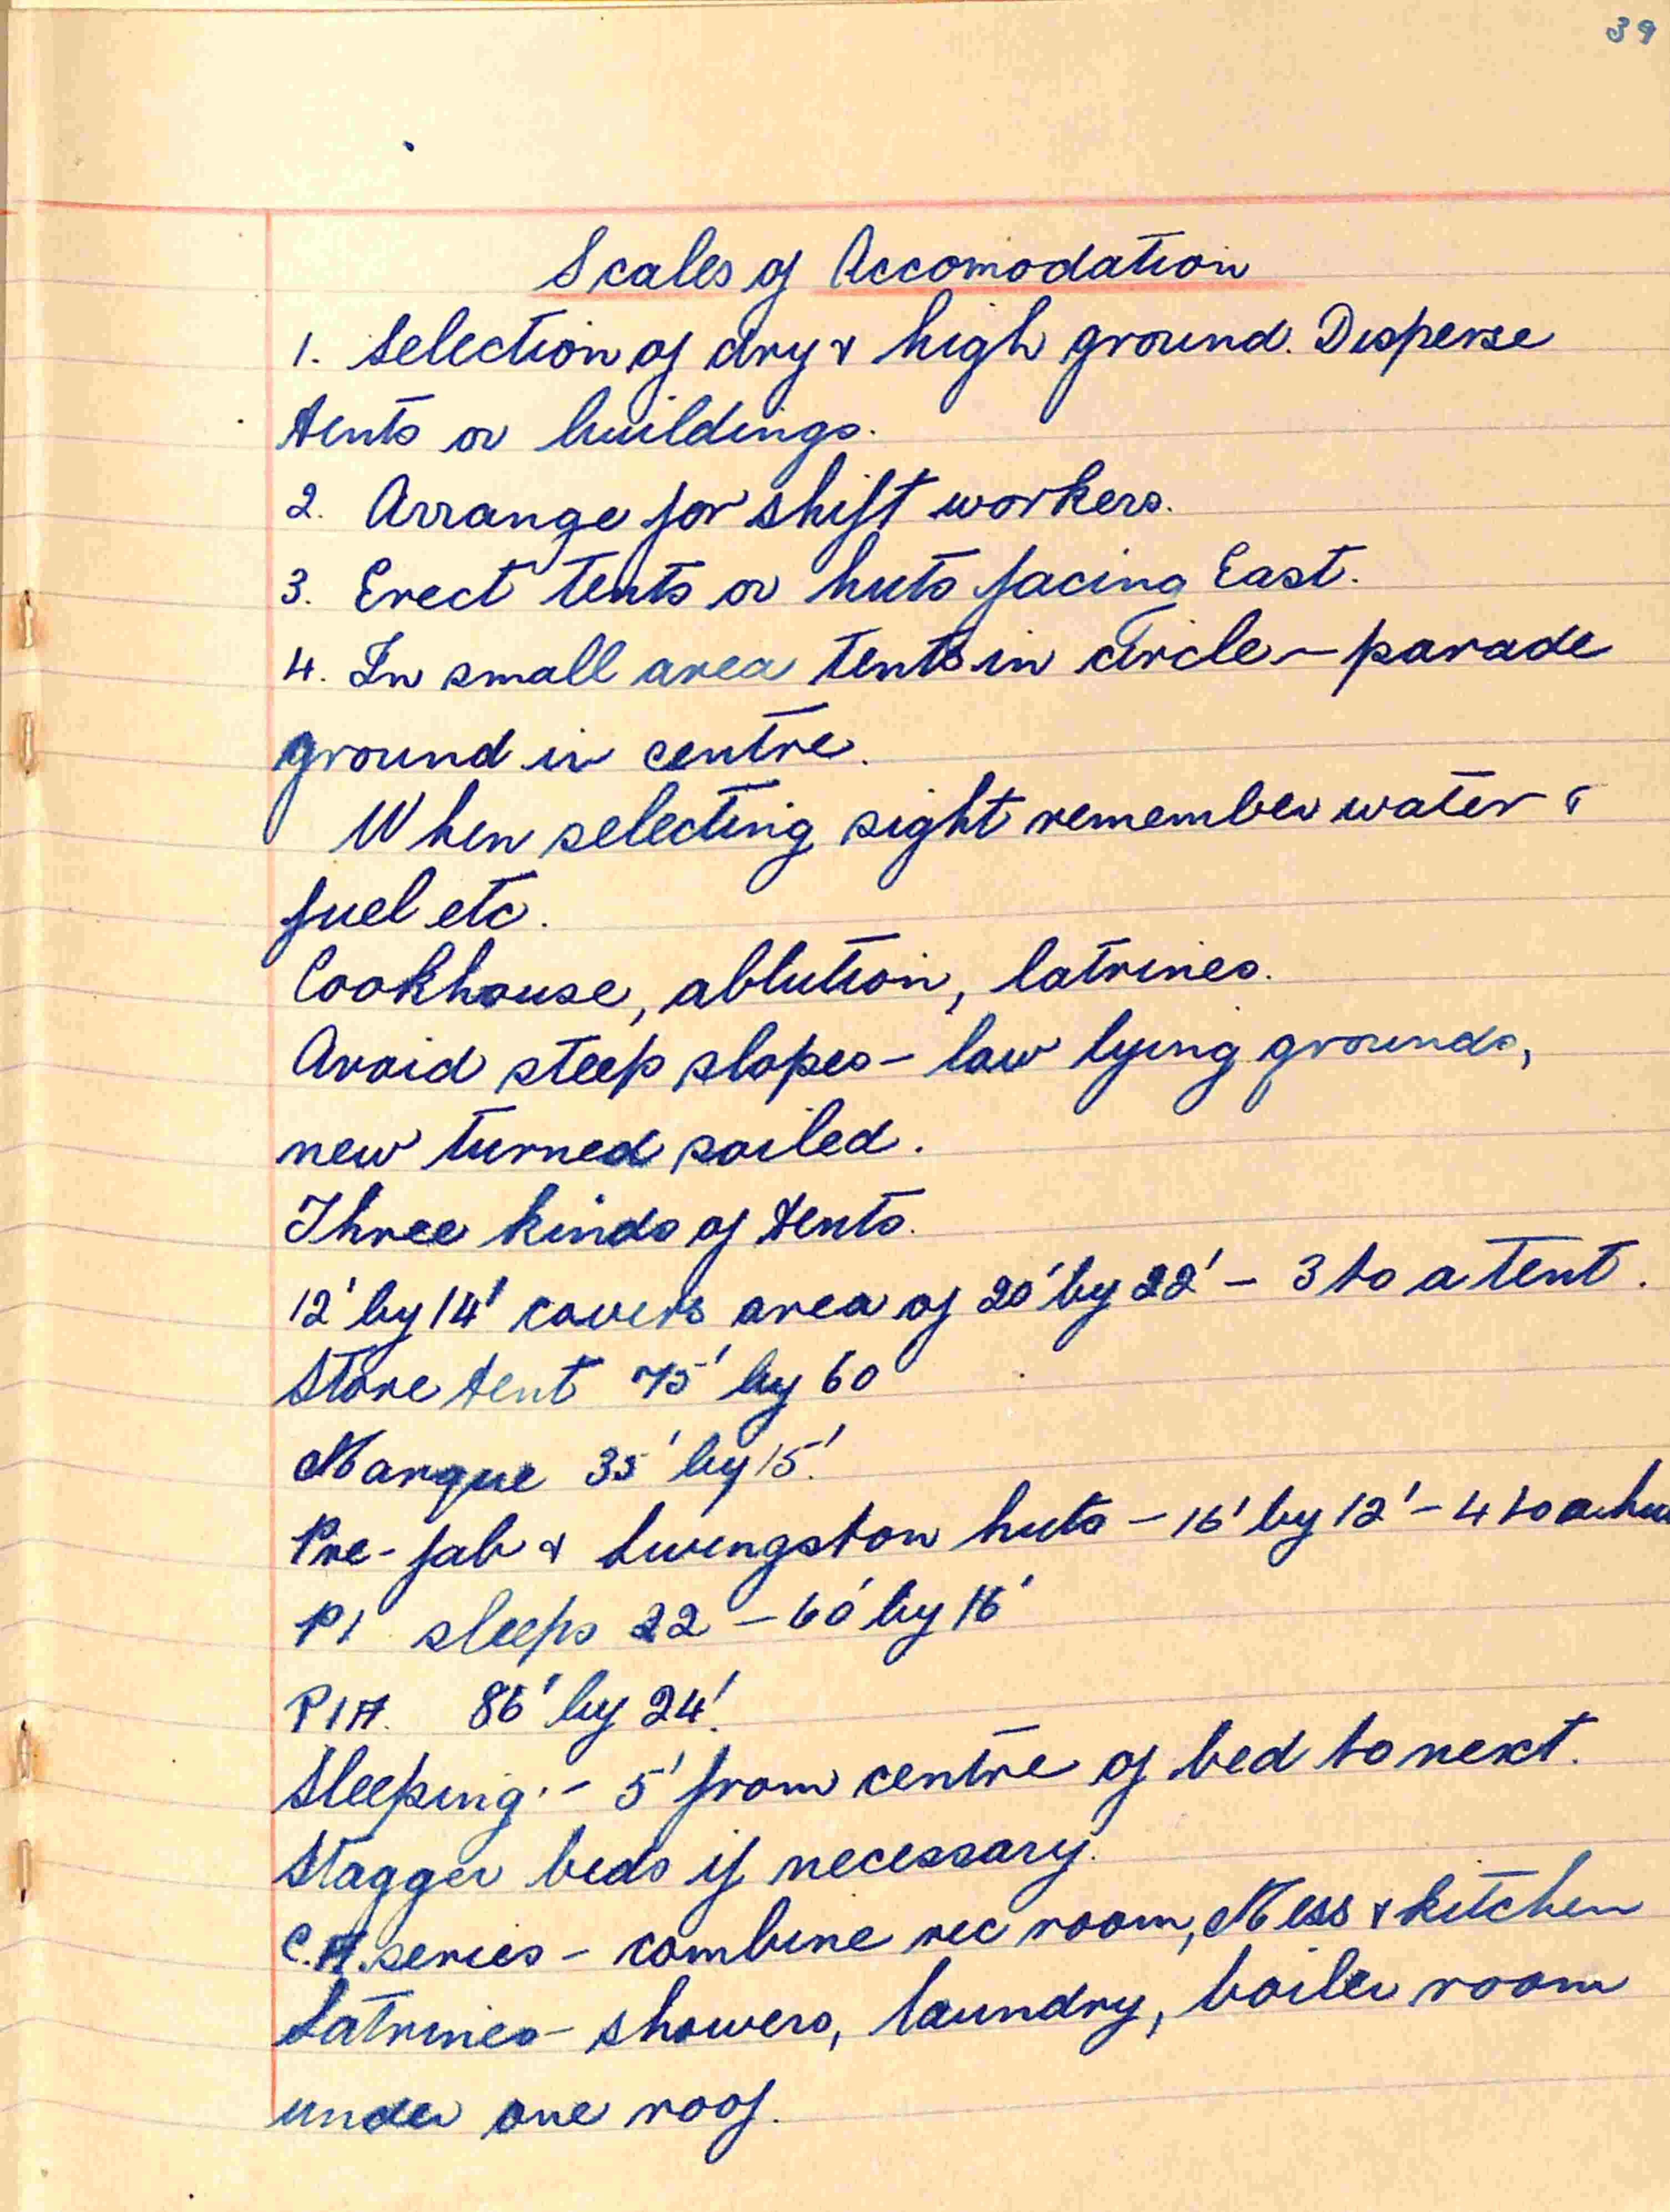 39
Scales of Accomodation
1. Selection of dry & high ground. Disperse
tents or buildings.
2. Arrange for shift workers.
3. Erect tents or huts facing East.
4. In small area tents in circle - parade
ground in centre.
When selecting sight remember water &
fuel etc.
Cookhouse, ablution, latrines.
Avoid steep slopes - low lying grounds,
new turned soiled.
Three kinds of tents.
12' by 14' covers area of 20' by 22' - 3 to a tent.
Store tent 75' by 60
Marque 35' by 15'.
Pre-fab & Livingston huts - 16' by 12' - 4 to a hu
P1 sleeps 22 - 60' by 16'
P1A. 86' by 24'.
Sleeping :- 5' from centre of bed to next.
Stagger beds if necessary.
C.A. series - combine rec room, Mess & kitchen
Latrines - showers, laundry, boiler room
under one roof.